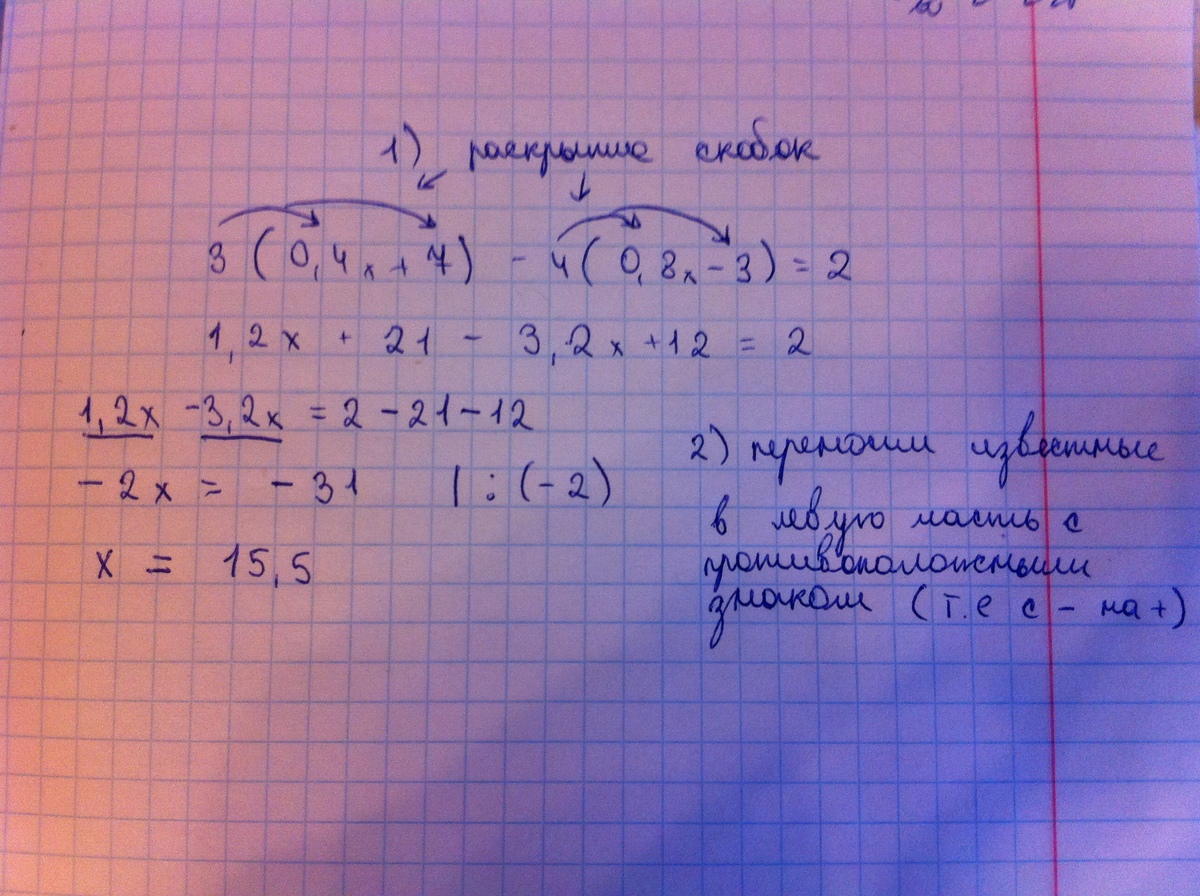 1) раскрытие скобок
3 ( 0,4x + 7 ) - 4 ( 0,8x - 3 ) = 2
1,2x + 21 - 3,2x + 12 = 2
1,2x - 3,2x = 2 - 21 - 12
- 2x = - 31 | : (-2)
x = 15,5
2) переносим известные
в левую часть с
противоположным
знаком ( т.е с - на + )